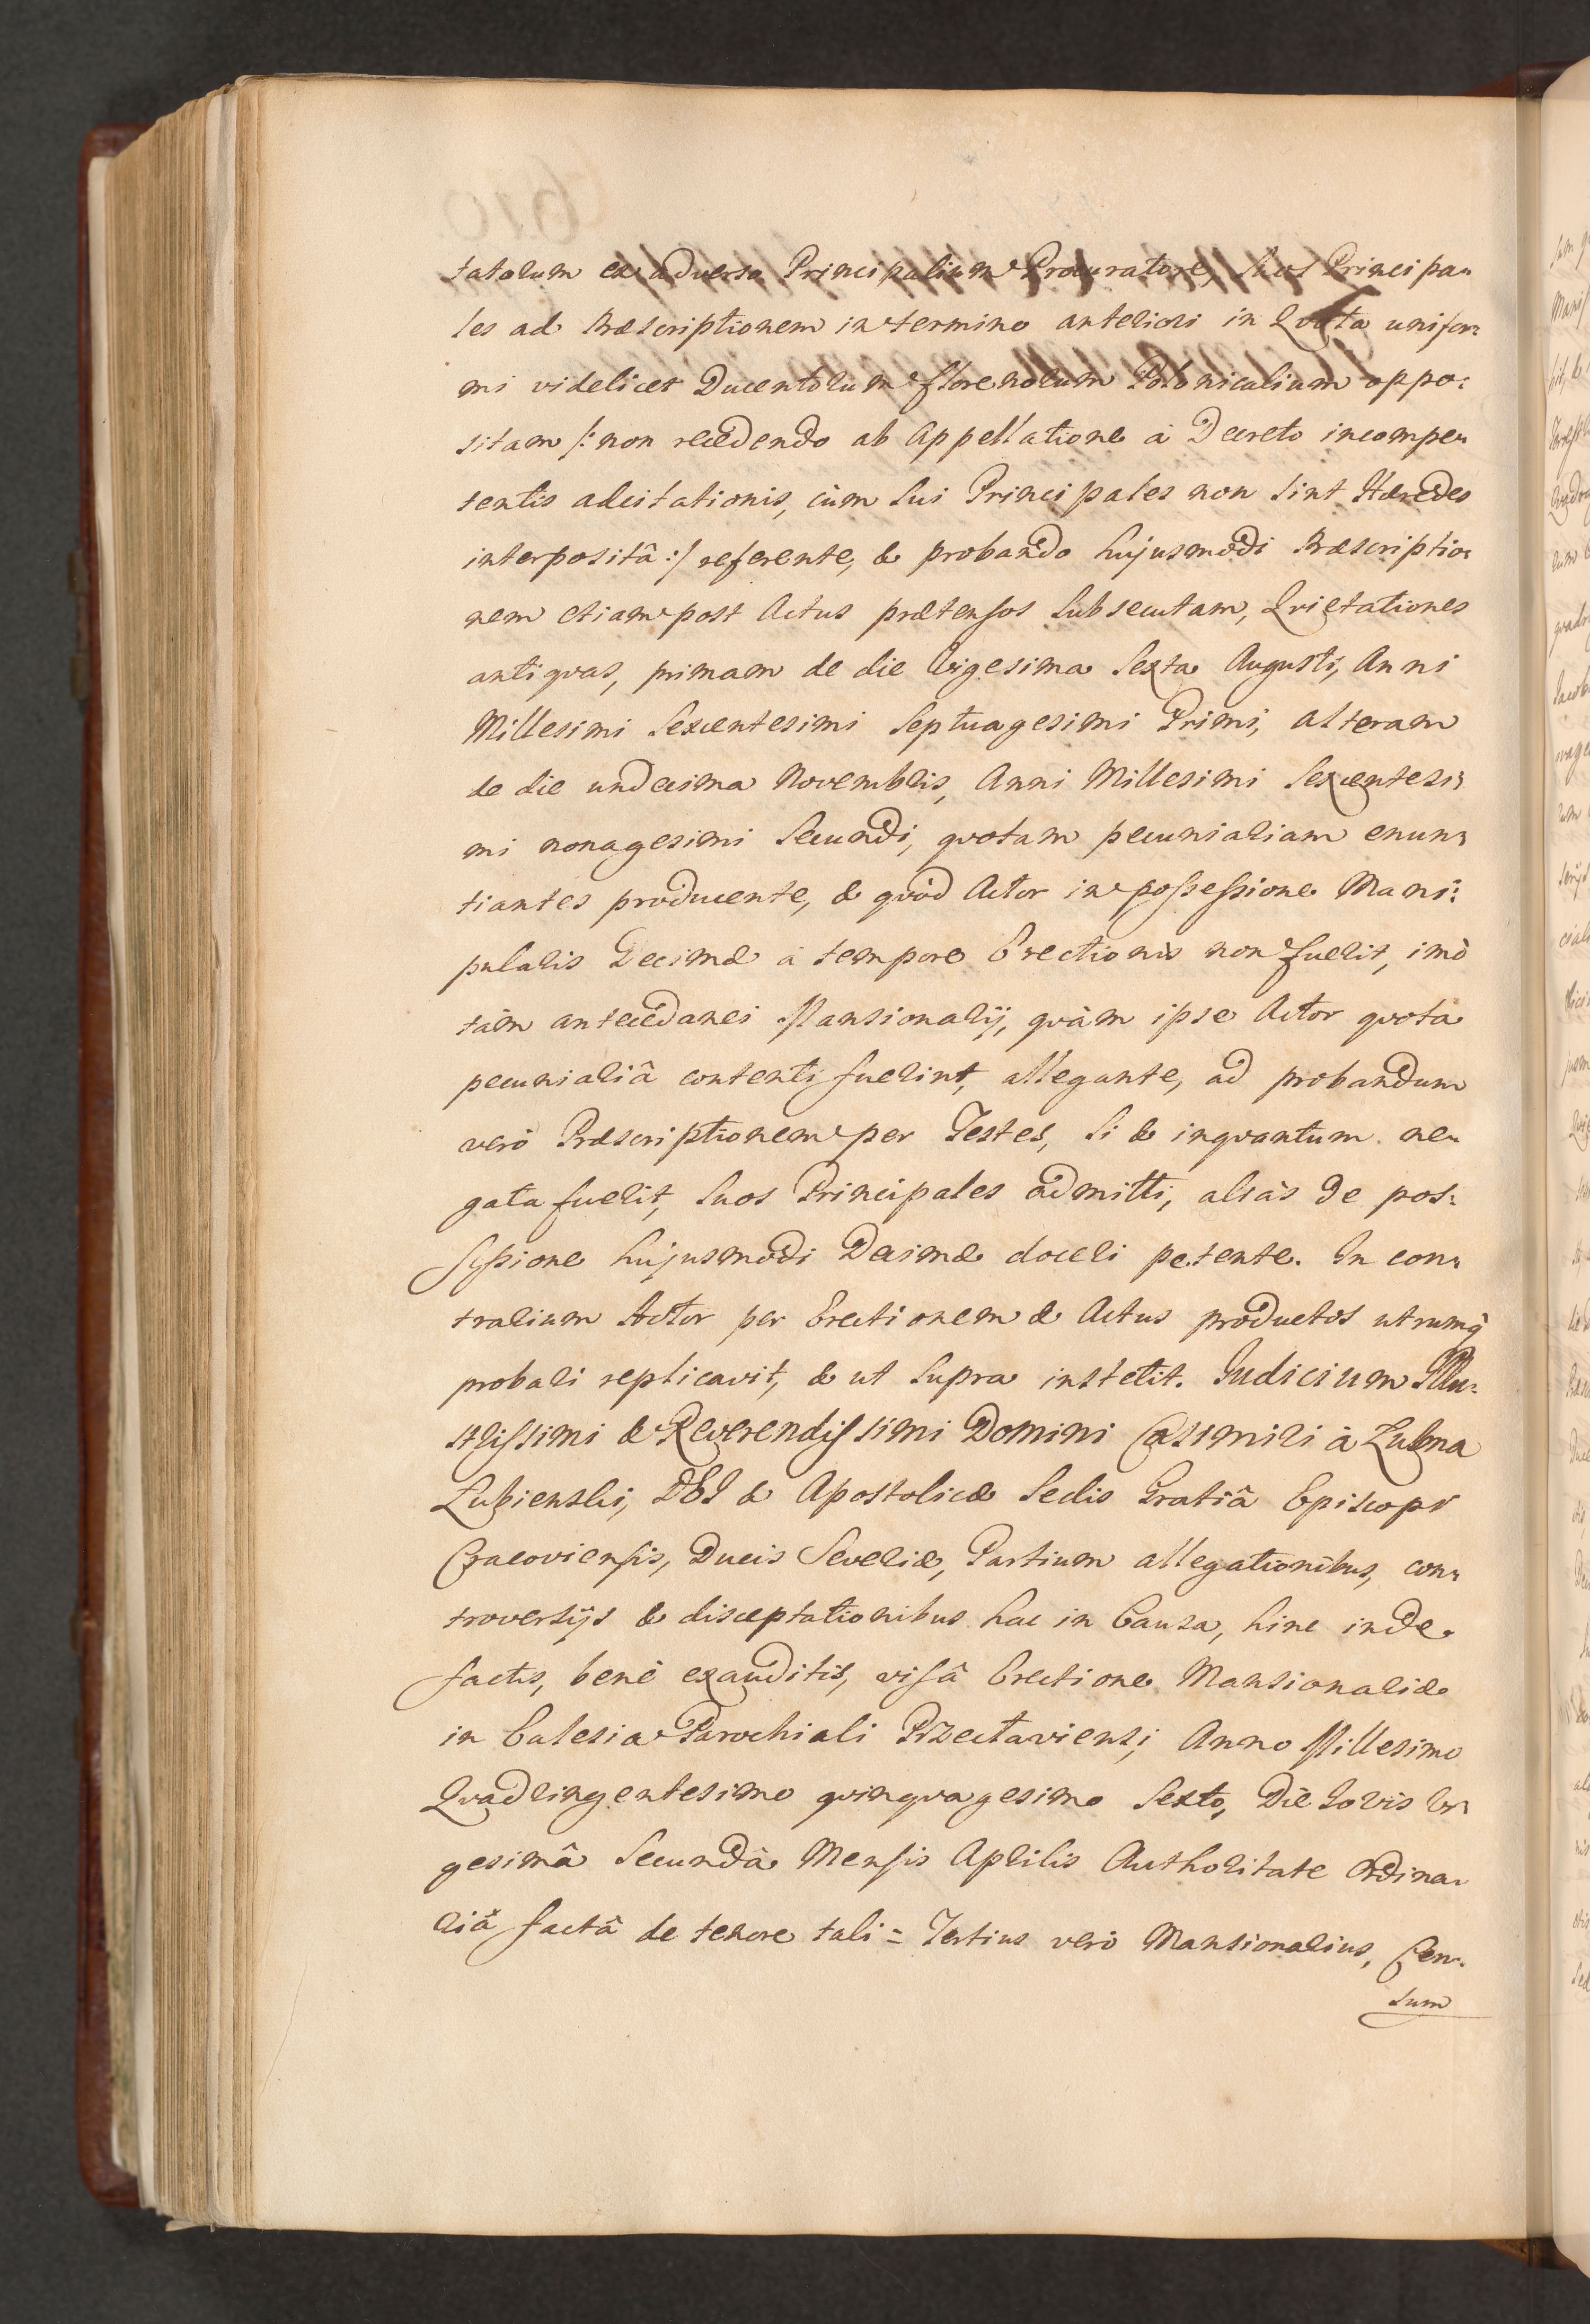 tatorum ex adverso Principalium Procuratore, suos Principa=
les ad Præscriptionem in termino anteriori in Qvota unifor=
mi videlicet Ducentorum florenorum Polonicalium oppo=
sitam /: non recedendo ab Appellatione à Decreto incompe=
tentis adcitationis, cùm sui Principales non sint Hæredes
interpositâ :/ referente, & probando hujusmodi Præscriptio=
nem etiam post Actus prætensos subsecutam, Qvietationes
antiqvas, primam de die Vigesima Sexta Augusti, Anni
Millesimi Sexcentesimi Septuagesimi Primi, alteram
de die undecima Novembris, Anni Millesimi Sexcentesi=
mi nonagesimi Secundi, qvotam pecuniariam enun=
tiantes producente, & qvòd Actor in possessione Mani=
pularis Decimæ à tempore Erectionis non fuerit, imò
tàm antecedanei Mansionarij, qvàm ipse Actor qvota
pecuniariâ contenti fuerint, allegante, ad probandum
verò Præscriptionem per Testes, si & inqvantum ne=
gata fuerit, suos Principales admitti, aliàs de pos=
sessione hujusmodi Decimæ doceri petente. In con=
trarium Actor per Erectionem & Actus productos utrumq
probari replicavit, & ut supra institit. Judicium Illu=
strissimi & Reverendissimi Domini Casimiri à Lubna
Lubienski, DEI & Apostolicæ Sedis Gratiâ Episcopi
Cracoviensis, Ducis Severiæ, Partium allegationibus, con=
troversijs & disceptationibus hac in Causa, hinc inde
factis, benè exauditis, visâ Erectione Mansionariæ
in Ecclesia Parochiali Przectaviensi, Anno Millesimo
Qvadringentesimo qvinqvagesimo Sexto, Die Jovis Vi=
gesimâ Secundâ Mensis Aprilis Authoritate Ordina=
riâ factâ de tenore tali = Tertius verò Mansionarius, Cen=
sum